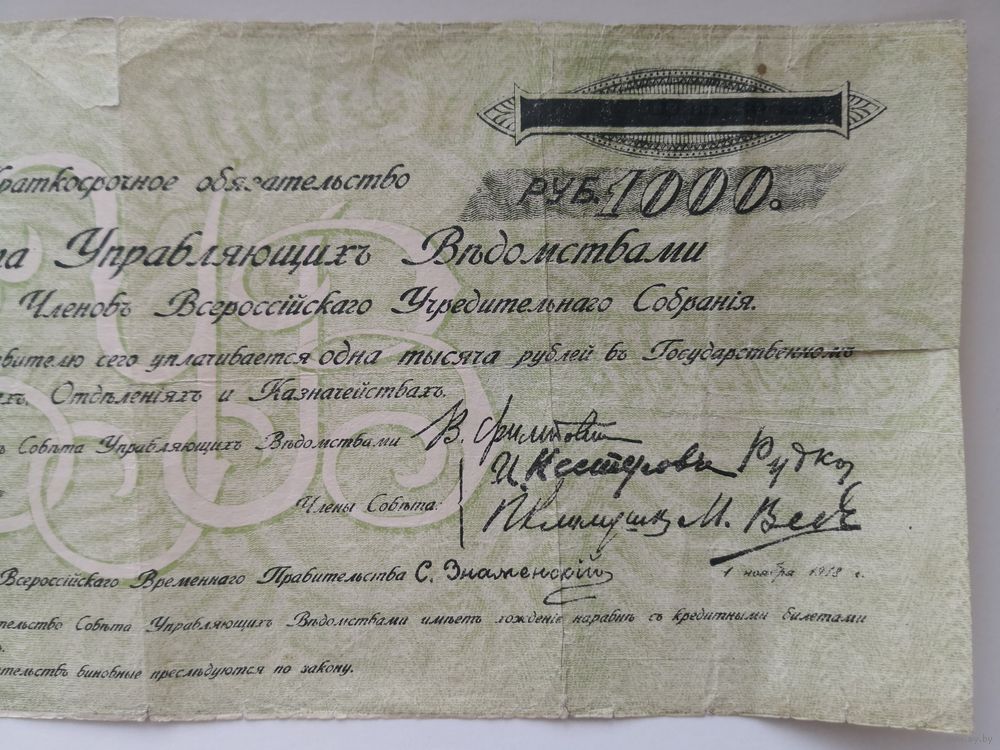 Краткосрочное обязательство
РУБ. 1000.
та Управляющихъ Вѣдомствами
Членовъ Всероссійскаго Учредительнаго Собранія.
явителю сего уплачивается одна тысяча рублей въ Государственномъ
ихъ, Отдѣленіяхъ и Казначействахъ.
ь Совѣта Управляющихъ Вѣдомствами В. Филипповскій
И. Нестеровъ Рудко
Члены Совѣта:
П. Климушк М. Вед
Всероссійскаго Временнаго Правительства С. Знаменскій
1 ноября 1918 г.
тельство Совѣта Управляющихъ Вѣдомствами имѣетъ хожденіе наравнѣ съ кредитными билетами
ательствъ виновные преслѣдуются по закону.